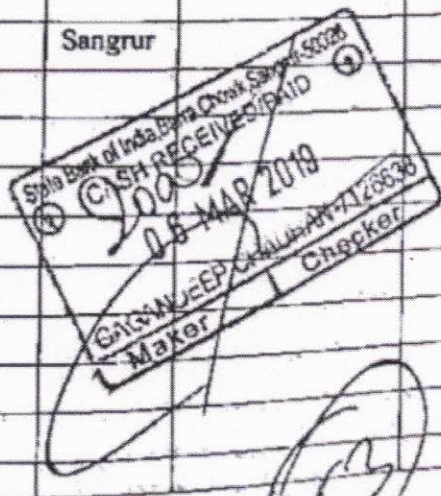 Sangrur
State Bank of India, Barra Chowk, Sangrur-50026
CASH RECEIVED/PAID
06 MAR 2019
GAGANDEEP CHAUHAN-7126638
Maker
Checker